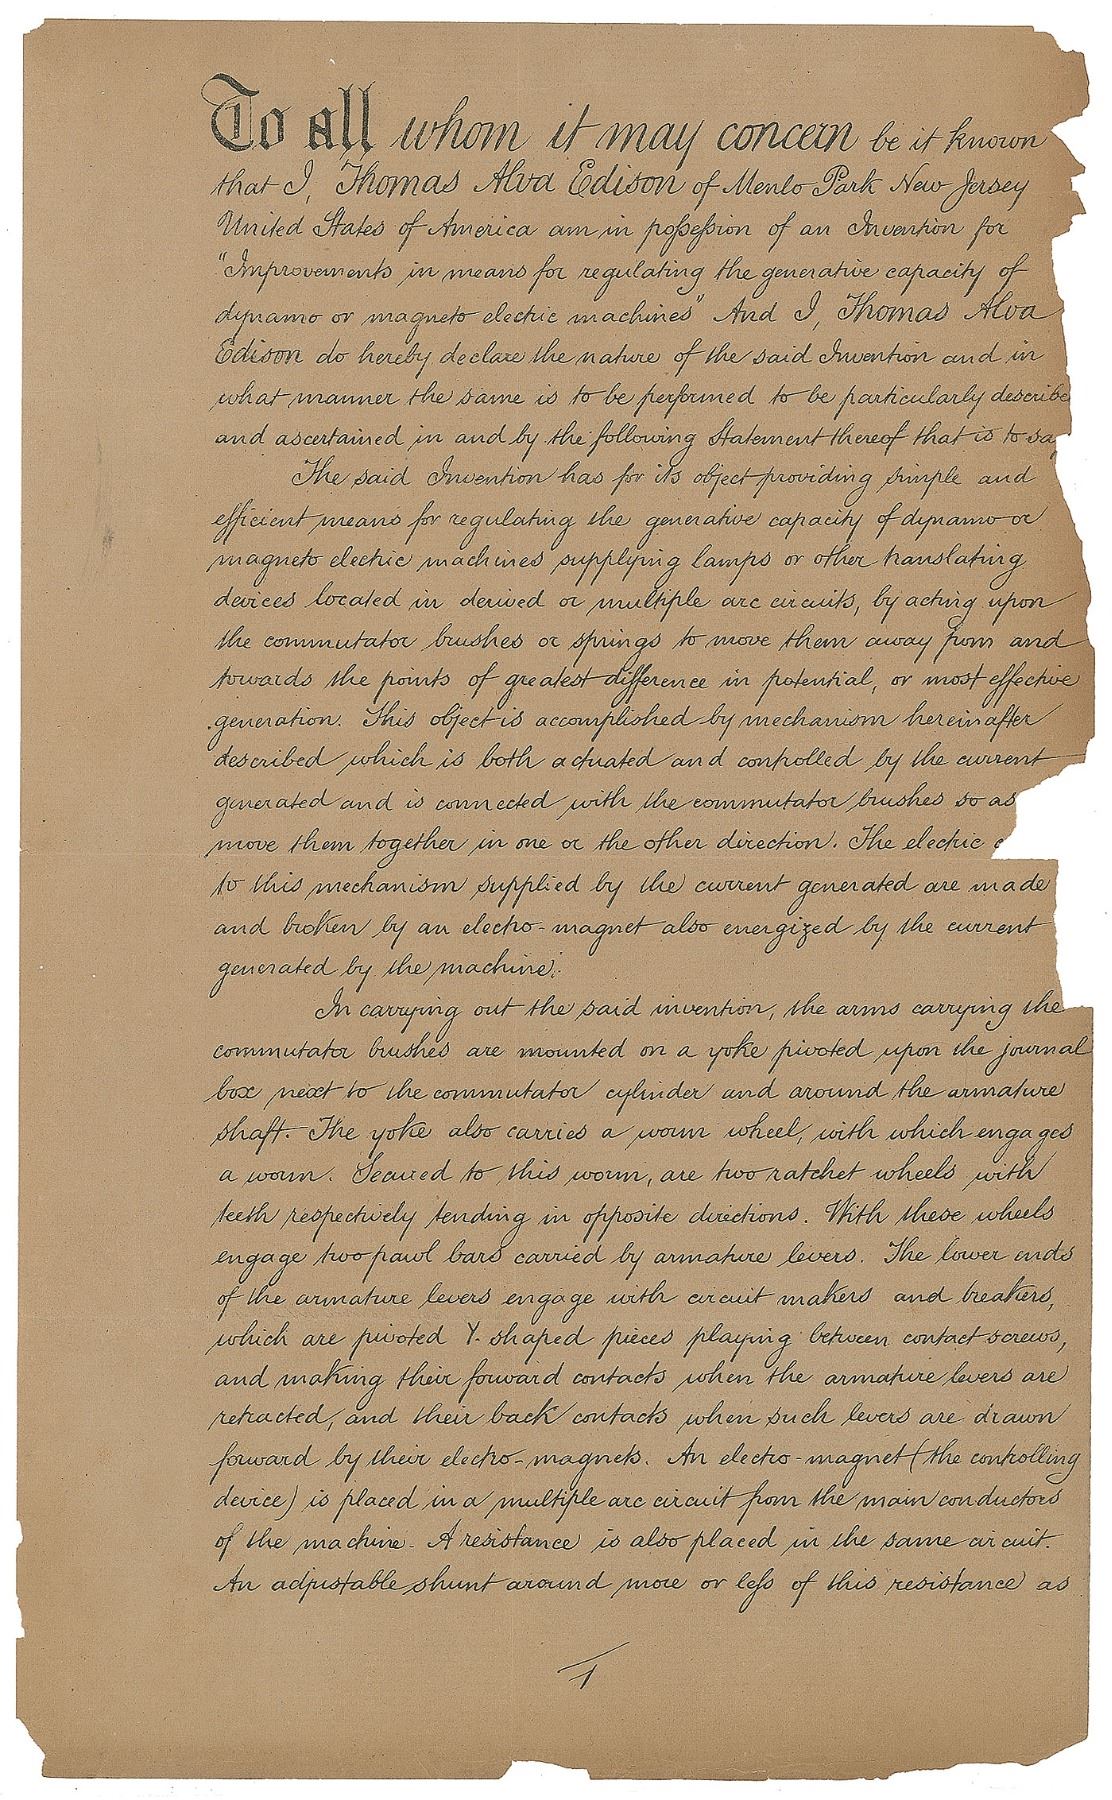 To all whom it may concern be it known
that I, Thomas Alva Edison of Menlo Park New Jersey
United States of America am in poſseſsion of an Invention for
"Improvements in means for regulating the generative capacity of
dynamo or magneto electric machines" And I, Thomas Alva
Edison do hereby declare the nature of the said Invention and in
what manner the same is to be performed to be particularly describe
and ascertained in and by the following Statement thereof that is to sa
The said Invention has for its object providing simple and
efficient means for regulating the generative capacity of dynamo or
magneto electric machines supplying lamps or other translating
devices located in derived or multiple arc circuits, by acting upon
the commutator brushes or springs to move them away from and
towards the points of greatest difference in potential, or most effective
generation. This object is accomplished by mechanism hereinafter
described which is both actuated and controlled by the current
generated and is connected with the commutator brushes so as
move them together in one or the other direction. The electric
to this mechanism supplied by the current generated are made
and broken by an electro-magnet also energized by the current
generated by the machine.
In carrying out the said invention, the arms carrying the
commutator brushes are mounted on a yoke pivoted upon the journal
box next to the commutator cylinder and around the armature
shaft. The yoke also carries a worm wheel, with which engages
a worm. Secured to this worm, are two ratchet wheels with
teeth respectively tending in opposite directions. With these wheels
engage two pawl bars carried by armature levers. The lower ends
of the armature levers engage with circuit makers and breakers,
which are pivoted Y-shaped pieces playing between contact screws,
and making their forward contacts when the armature levers are
retracted, and their back contacts when such levers are drawn
forward by their electro-magnets. An electro-magnet (the controlling
device) is placed in a multiple arc circuit from the main conductors
of the machine. A resistance is also placed in the same circuit.
An adjustable shunt around more or leſs of this resistance as
1